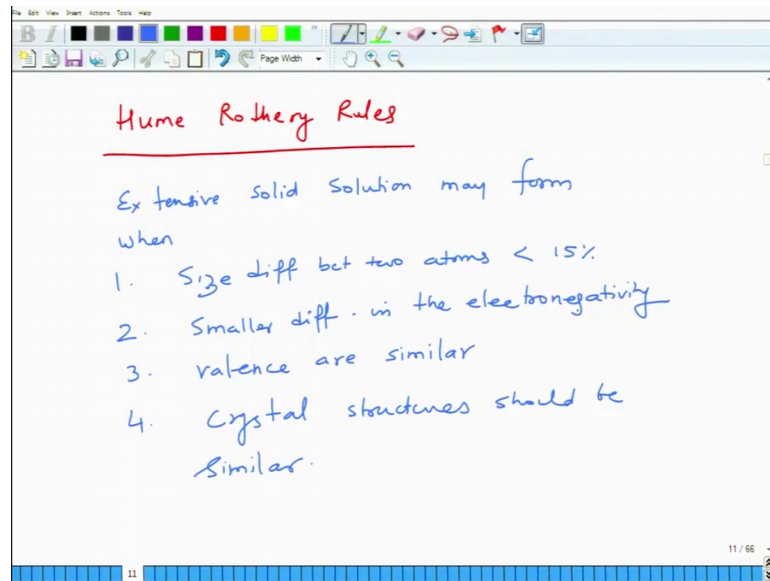 File Edit View Insert Actions Tools Help
B I
Page Width
Hume Rothery Rules
Extensive solid solution may form
when
1. Size diff bet two atoms < 15%
2. Smaller diff. in the electronegativity
3. valence are similar
4. Crystal structures should be
similar.
11 / 66
11